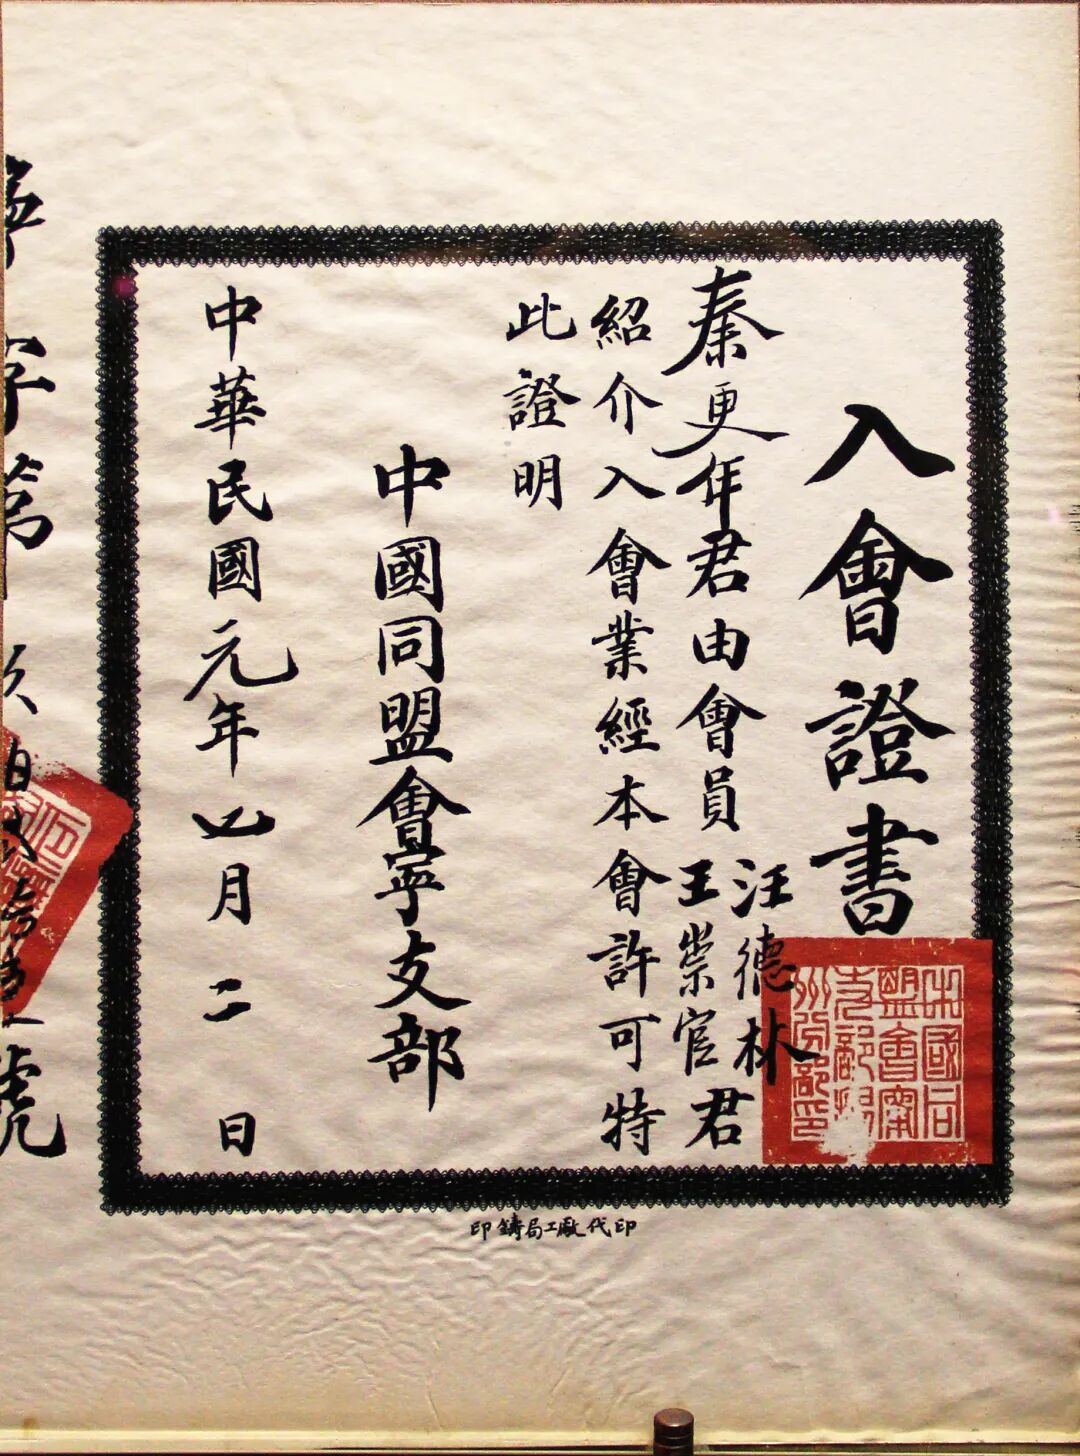 入會證書
秦更年君由會員汪德林王崇官君
紹介入會業經本會許可特
此證明
中國同盟會寧支部
中華民國元年七月二日
字第
號
印鑄局工廠代印